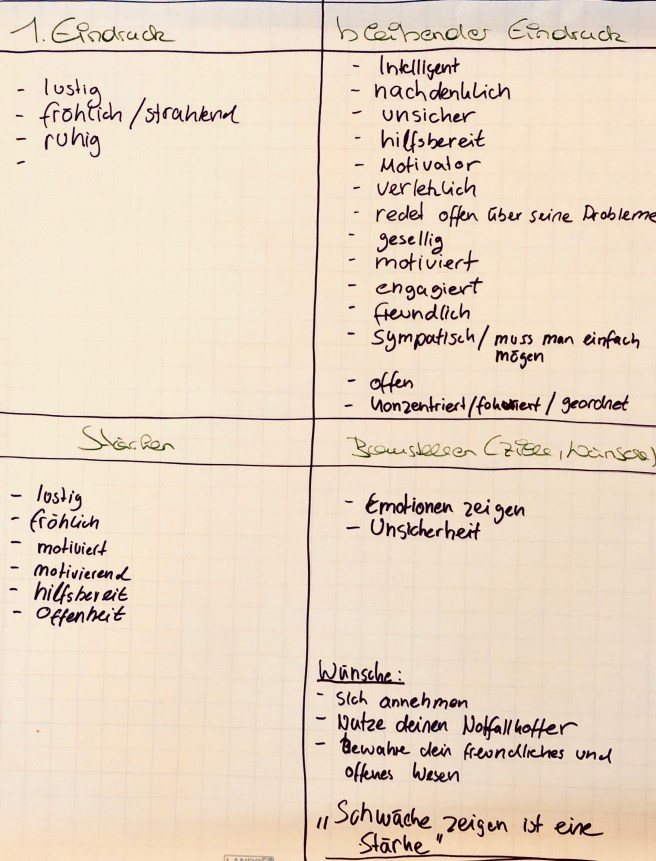 1. Eindruck
- lustig
- fröhlich / strahlend
- ruhig
-
bleibender Eindruck
- Intelligent
- nachdenklich
- unsicher
- hilfsbereit
- Motivator
- verletzlich
- redet offen über seine Probleme
- gesellig
- motiviert
- engagiert
- freundlich
- Sympatisch / muss man einfach
mögen
- offen
- Konzentriert / fokussiert / geordnet
Stärken
- lustig
- fröhlich
- motiviert
- motivierend
- hilfsbereit
- Offenheit
Baustellen (Ziele, Wünsche)
- Emotionen zeigen
- Unsicherheit
Wünsche:
- Sich annehmen
- Nutze deinen Notfallkoffer
- Bewahre dein freundliches und
offenes Wesen
„Schwäche zeigen ist eine
Stärke"